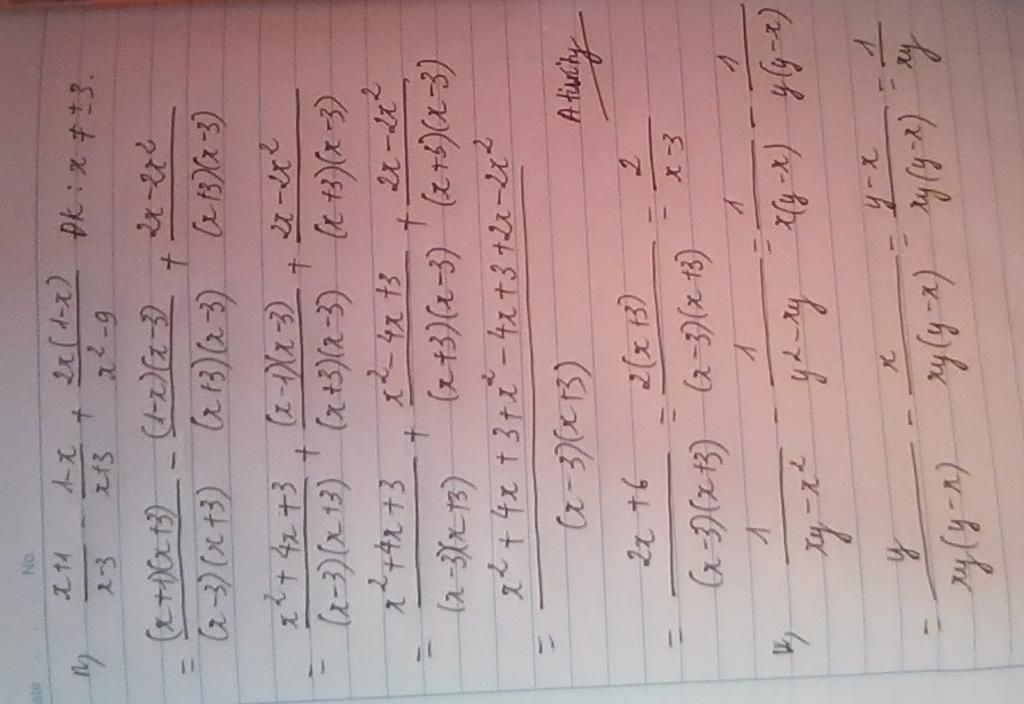 No.
n, \frac{x+1}{x-3} - \frac{1-x}{x+3} + \frac{2x(1-x)}{x^2-9} Đk: x ≠ ±3.
= \frac{(x+1)(x+3)}{(x-3)(x+3)} - \frac{(1-x)(x-3)}{(x+3)(x-3)} + \frac{2x-2x^2}{(x+3)(x-3)}
= \frac{x^2+4x+3}{(x-3)(x+3)} + \frac{(x-1)(x-3)}{(x+3)(x-3)} + \frac{2x-2x^2}{(x+3)(x-3)}
= \frac{x^2+4x+3}{(x-3)(x+3)} + \frac{x^2-4x+3}{(x+3)(x-3)} + \frac{2x-2x^2}{(x+3)(x-3)}
= \frac{x^2+4x+3+x^2-4x+3+2x-2x^2}{(x-3)(x+3)}
= \frac{2x+6}{(x-3)(x+3)} = \frac{2(x+3)}{(x-3)(x+3)} = \frac{2}{x-3}
\frac{1}{xy-x^2} - \frac{1}{y^2-xy} = \frac{1}{x(y-x)} - \frac{1}{y(y-x)}
= \frac{y}{xy(y-x)} - \frac{x}{xy(y-x)} = \frac{y-x}{xy(y-x)} = \frac{1}{xy}